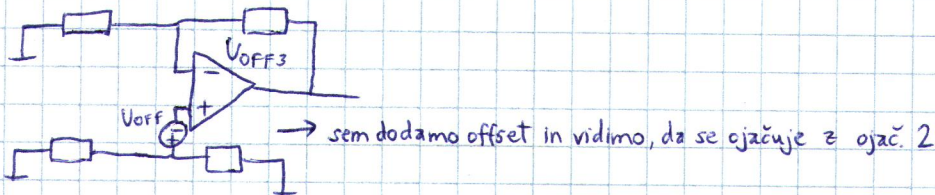 UOFF3
UOFF
→ sem dodamo offset in vidimo, da se ojačuje z ojač. 2